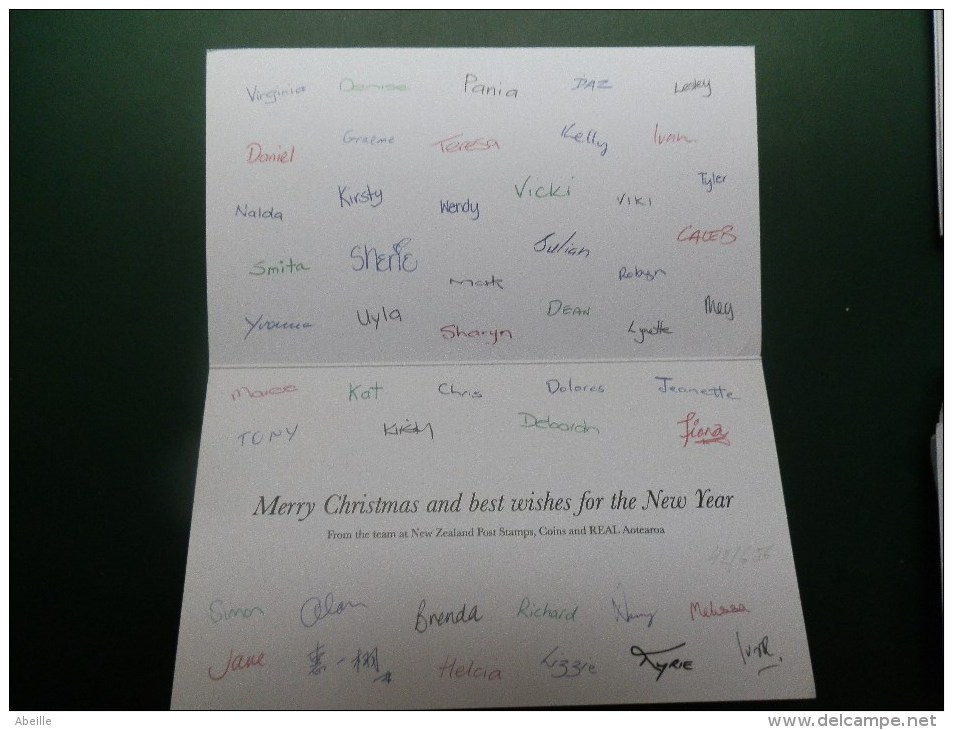 Virginia Denise Pania DAZ Lesley
Daniel Graeme TERESA Kelly Ivan
Nalda Kirsty Wendy Vicki VIKI Tyler
Smita Sherie Mark Julian Robyn CALEB
Yvonne Uyla Sharyn DEAN Lynette Meg
Kat Chris Dolores Jeanette
TONY Deborah Fiona
Merry Christmas and best wishes for the New Year
From the team at New Zealand Post Stamps, Coins and REAL Aotearoa
Simon Alan Brenda Richard Melissa
Jane Helcia Lizzie KYRIE
Abeille
www.delcampe.net